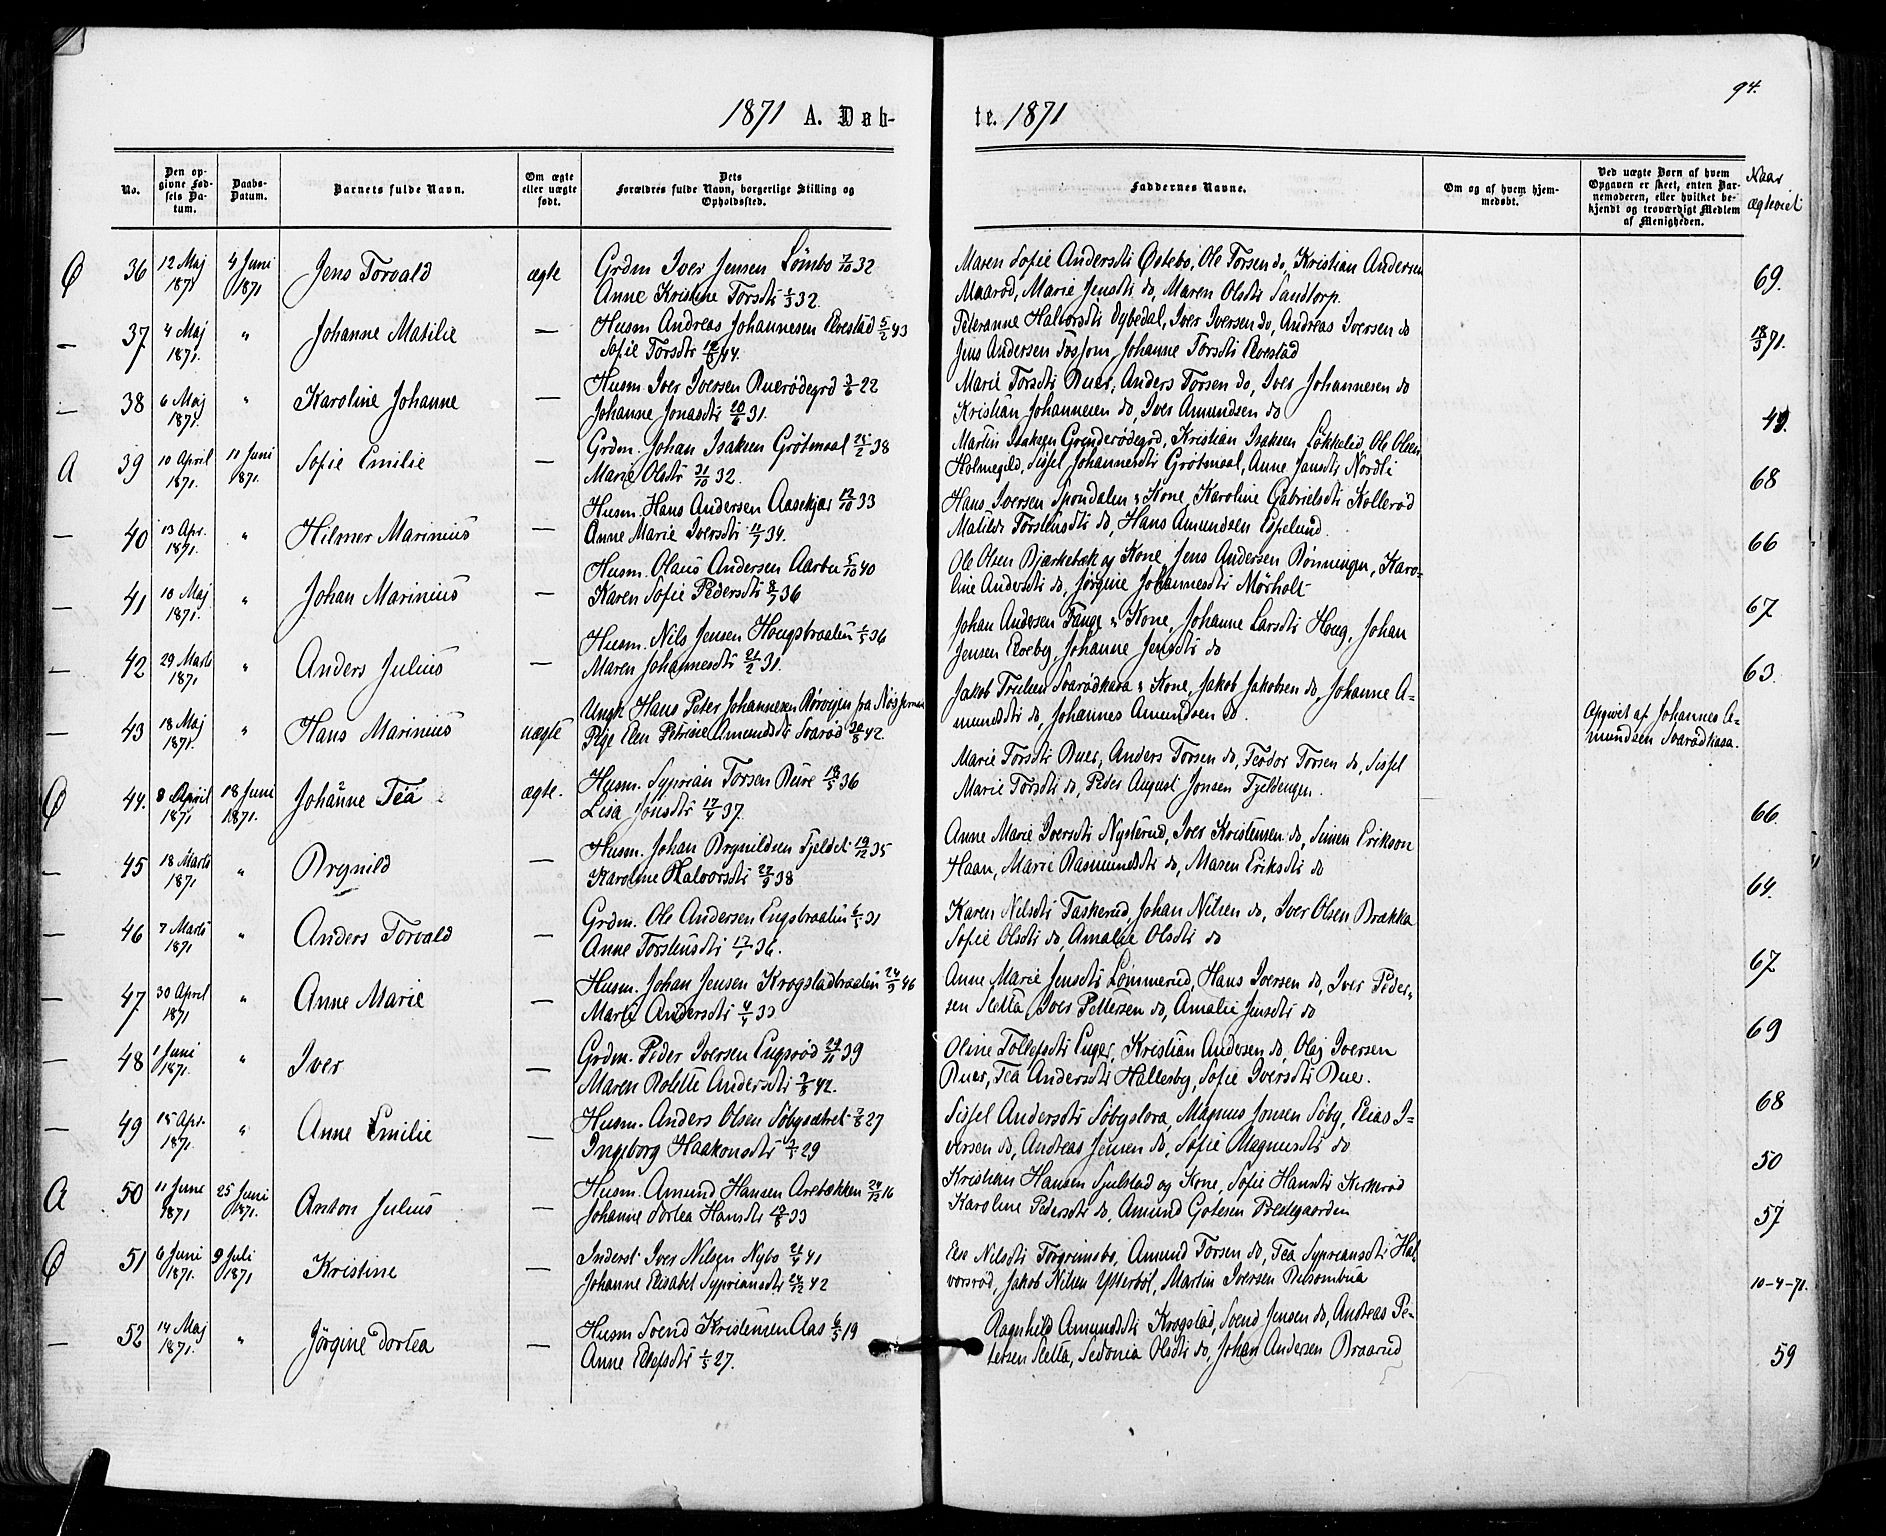 94.
1871 A. Døb-
te. 1871
No.
Den op-
givne Fød-
sels Da-
tum.
Daabs-
Datum.
Barnets fulde Navn.
Om ægte
eller uægte
født.
Dets
Forældres fulde Navn, borgerlige Stilling og
Opholdssted.
Faddernes Navne.
Om og af hvem hjem-
medøbt.
Ved uægte Børn af hvem
Opgaven er skeet, enten Bar-
nemoderen, eller hvilket be-
kjendt og troværdigt Medlem
af Menigheden.
Naar
ægteviet
Ø 36 12 Maj 1871 4 Juni 1871 Jens Torvald ægte Grdm Iver Jensen Lømbo 7/10 32
Anne Kristine Torsdtr 1/3 32.
Maren Sofie Andersdtr Østebø, Ole Torsen do, Kristian Andersen
Maarød, Marie Jensdtr do, Maren Olsdtr Sandtorp.
69.
— 37 4 Maj 1871. " Johanne Matilie — Husm Andreas Johannesen 5/2 43
Sofie Torsdtr 44.
Peteranne Halvorsdtr Dybedal, Iver Iversen do, Andreas Iversen do
Jens Andersen Fosjom, Johanne Torsdtr
18/3 71.
— 38 6 Maj 1871. " Karoline Johanne — Husm. Iver Iversen Buerødegrd 3/6 22
Johanne Jonasdtr 20/6 31.
Marie Torsdtr Buer, Anders Torsen do, Iver Johannesen do
Kristian Johannesen do, Iver Amundsen do
A 39 10 April 1871. 11 Juni 1871. Sofie Emilie — Grdm. Johan Isaksen Grøtmaal 38
Marie Olsdtr 31/10 32.
Martin Isaksen Grinderødegrd, Kristian Isaksen Løkkelid Ole Olsen
Holmegild, Sissel Johannesdtr Grøtmaal, Anne Jansdtr Nordli
68
— 40 13 Apr. 1871. " Hilmer Marinius — Husm. Hans Andersen Aasekjær 12/10 33
Anne Marie Iversdtr 34.
Hans Iversen Spondalen " Kone, Karoline Gabrielsdtr Kollerød
Matilde Torstensdtr do, Hans Amundsen Espelund.
66
— 41 10 Maj 1871. " Johan Marinius — Husm. Olaus Andersen Aarbu 5/10 40
Karen Sofie Pedersdtr 8/7 36
Ole Olsen Bjærkebæk og Kone, Jens Andersen Rønningen, Karo-
line Andersdtr do, Jørgine Johannesdtr Mørholt
67
— 42 29 Marts 1871 " Anders Julius — Husm. Nils Jensen Hougsbraaten 1/5 36
Maren Johannesdtr 21/2 31.
Johan Andersen Fange " Kone, Johanne Larsdtr Houg, Johan
Jensen, Johanne Jensdtr do
63.
— 43 18 Maj 1871. " Hans Marinius uægte Ungk Hans Peter Johannesen
Pige Elen Petrine Amundsdtr Svarød 42.
Jakob Truelsen Svarødkasa " Kone, Jakob Jakobsen do, Johanne A-
mundsdtr do, Johannes Amundsen do.
Opgivet af Johannes A-
mundsen Svarødkasa.
Ø 44. 8 April 1871 18 Juni 1871. Johanne Tea ægte. Husm. Syprian Torsen Bure 18/5 36
Lisa Jonsdtr 17/4 37.
Marie Torsdtr Buer, Anders Torsen do, Teodor Torsen do, Sissel
Marie Torsdtr do, Peder August Jonsen Fjeldengen.
66.
— 45 18 Marts 1871 " Brynild — Husm. Johan Brynildsen Fjeldet 19/12 35
Karoline Halvorsdtr 27/9 38
Anne Marie Iversdtr Nysterud, Iver Kristensen do, Simen Erikson
Haan, Marie Rasmussdtr do, Maren Eriksdtr do
64.
— 46 7 Marts 1871 " Anders Torvald — Grdm. Ole Andersen Engsbraaten 6/5 31
Anne Torstensdtr 17/1 36.
Karen Nilsdtr Taskerud, Johan Nilsen do, Iver Olsen Brækka
Sofie Olsdtr do, Amalie Olsdtr do
67
— 47. 30 April 1871 " Anne Marie — Husm. Johan Jensen Krogstadbraaten 24/3 46
Marte Andersdtr 4/4 33
Anne Marie Jensdtr Lømmerud, Hans Iversen do, Iver Peder-
sen Sletta Iver Pettersen do, Amalie Jensdtr do
69
— 48 1 Juni 1871. " Iver — Grdm. Peder Iversen Engsrød 29/11 39
Maren Andersdtr 3/8 42.
Oline Tollefsdtr Enger, Kristian Andersen do, Olaj Iversen
Buer, Tea Andersdtr Hallesby, Sofie Iversdtr Buer.
68
— 49 15 Apr. 1871. " Anne Emilie — Husm. Anders Olsen Søbysætret 7/8 27
Ingeborg Haakonsdtr 29
Sissel Andersdtr Søbyslora, Magnus Jonsen Søby, Elias I-
versen do, Andreas Jensen do, Sofie Magnusdtr do
50
A 50 11 June 1871 25 Juni 1871. Anton Julius — Husm. Amund Hansen Arebækken 24/12 16
Johanne Dortea Hansdtr 19/8 33
Kristian Hansen Sjulstad og Kone, Sofie Hansdtr Kirkerød
Karoline Pedersdtr do, Amund Gotesen Prestegaarden
57
Ø 51 6 Juni 1871. 9 Juli 1871 Kristine — Inderst Iver Nilsen Nybo 21/4 41
Johanne Elisabet Sypriansdtr 24/12 42
Else Nilsdtr Torgrimsbø, Amund Torsen do, Tea Sypriansdtr Hal-
vorsrød, Jakob Nilsen Ytterbøl, Martin Iversen
10-4-71.
— 52 14 Maj 1871. " Jørgine Dortea — Husm Svend Kristensen Aas 6/5 19
Anne Ellefsdtr 1/5 27.
Ragnhild Amundsdtr Krogstad, Svend Jensen do, Andreas Pe-
tersen Sletta, Sedonia Olsdtr do, Johan Andersen Braarud
59